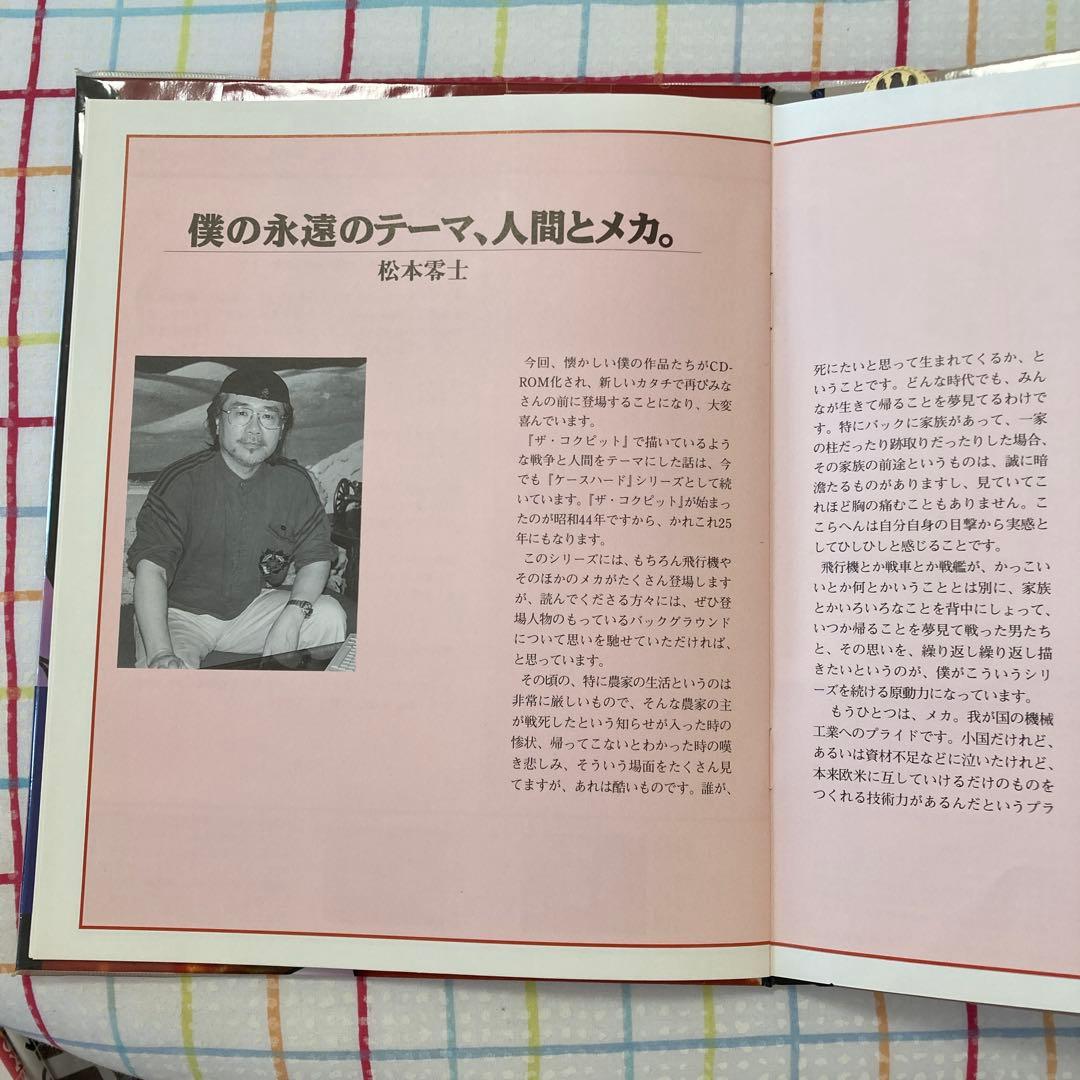 僕の永遠のテーマ、人間とメカ。
松本零士
今回、懐かしい僕の作品たちがCD-
ROM化され、新しいカタチで再びみな
さんの前に登場することになり、大変
喜んでいます。
『ザ・コクピット』で描いているよう
な戦争と人間をテーマにした話は、今
でも『ケースハード』シリーズとして続
いています。『ザ・コクピット』が始まっ
たのが昭和44年ですから、かれこれ25
年にもなります。
このシリーズには、もちろん飛行機や
そのほかのメカがたくさん登場します
が、読んでくださる方々には、ぜひ登
場人物のもっているバックグラウンド
について思いを馳せていただければ、
と思っています。
その頃の、特に農家の生活というのは
非常に厳しいもので、そんな農家の主
が戦死したという知らせが入った時の
惨状、帰ってこないとわかった時の嘆
き悲しみ、そういう場面をたくさん見
てますが、あれは酷いものです。誰が、
死にたいと思って生まれてくるか、と
いうことです。どんな時代でも、みん
なが生きて帰ることを夢見てるわけで
す。特にバックに家族があって、一家
の柱だったり跡取りだったりした場合、
その家族の前途というものは、誠に暗
澹たるものがありますし、見ていてこ
れほど胸の痛むこともありません。こ
こらへんは自分自身の目撃から実感と
してひしひしと感じることです。
飛行機とか戦車とか戦艦が、かっこい
いとか何とかいうこととは別に、家族
とかいろいろなことを背中にしょって、
いつか帰ることを夢見て戦った男たち
と、その思いを、繰り返し繰り返し描
きたいというのが、僕がこういうシリ
ーズを続ける原動力になっています。
もうひとつは、メカ。我が国の機械
工業へのプライドです。小国だけれど、
あるいは資材不足などに泣いたけれど、
本来欧米に互していけるだけのものを
つくれる技術力があるんだというプラ